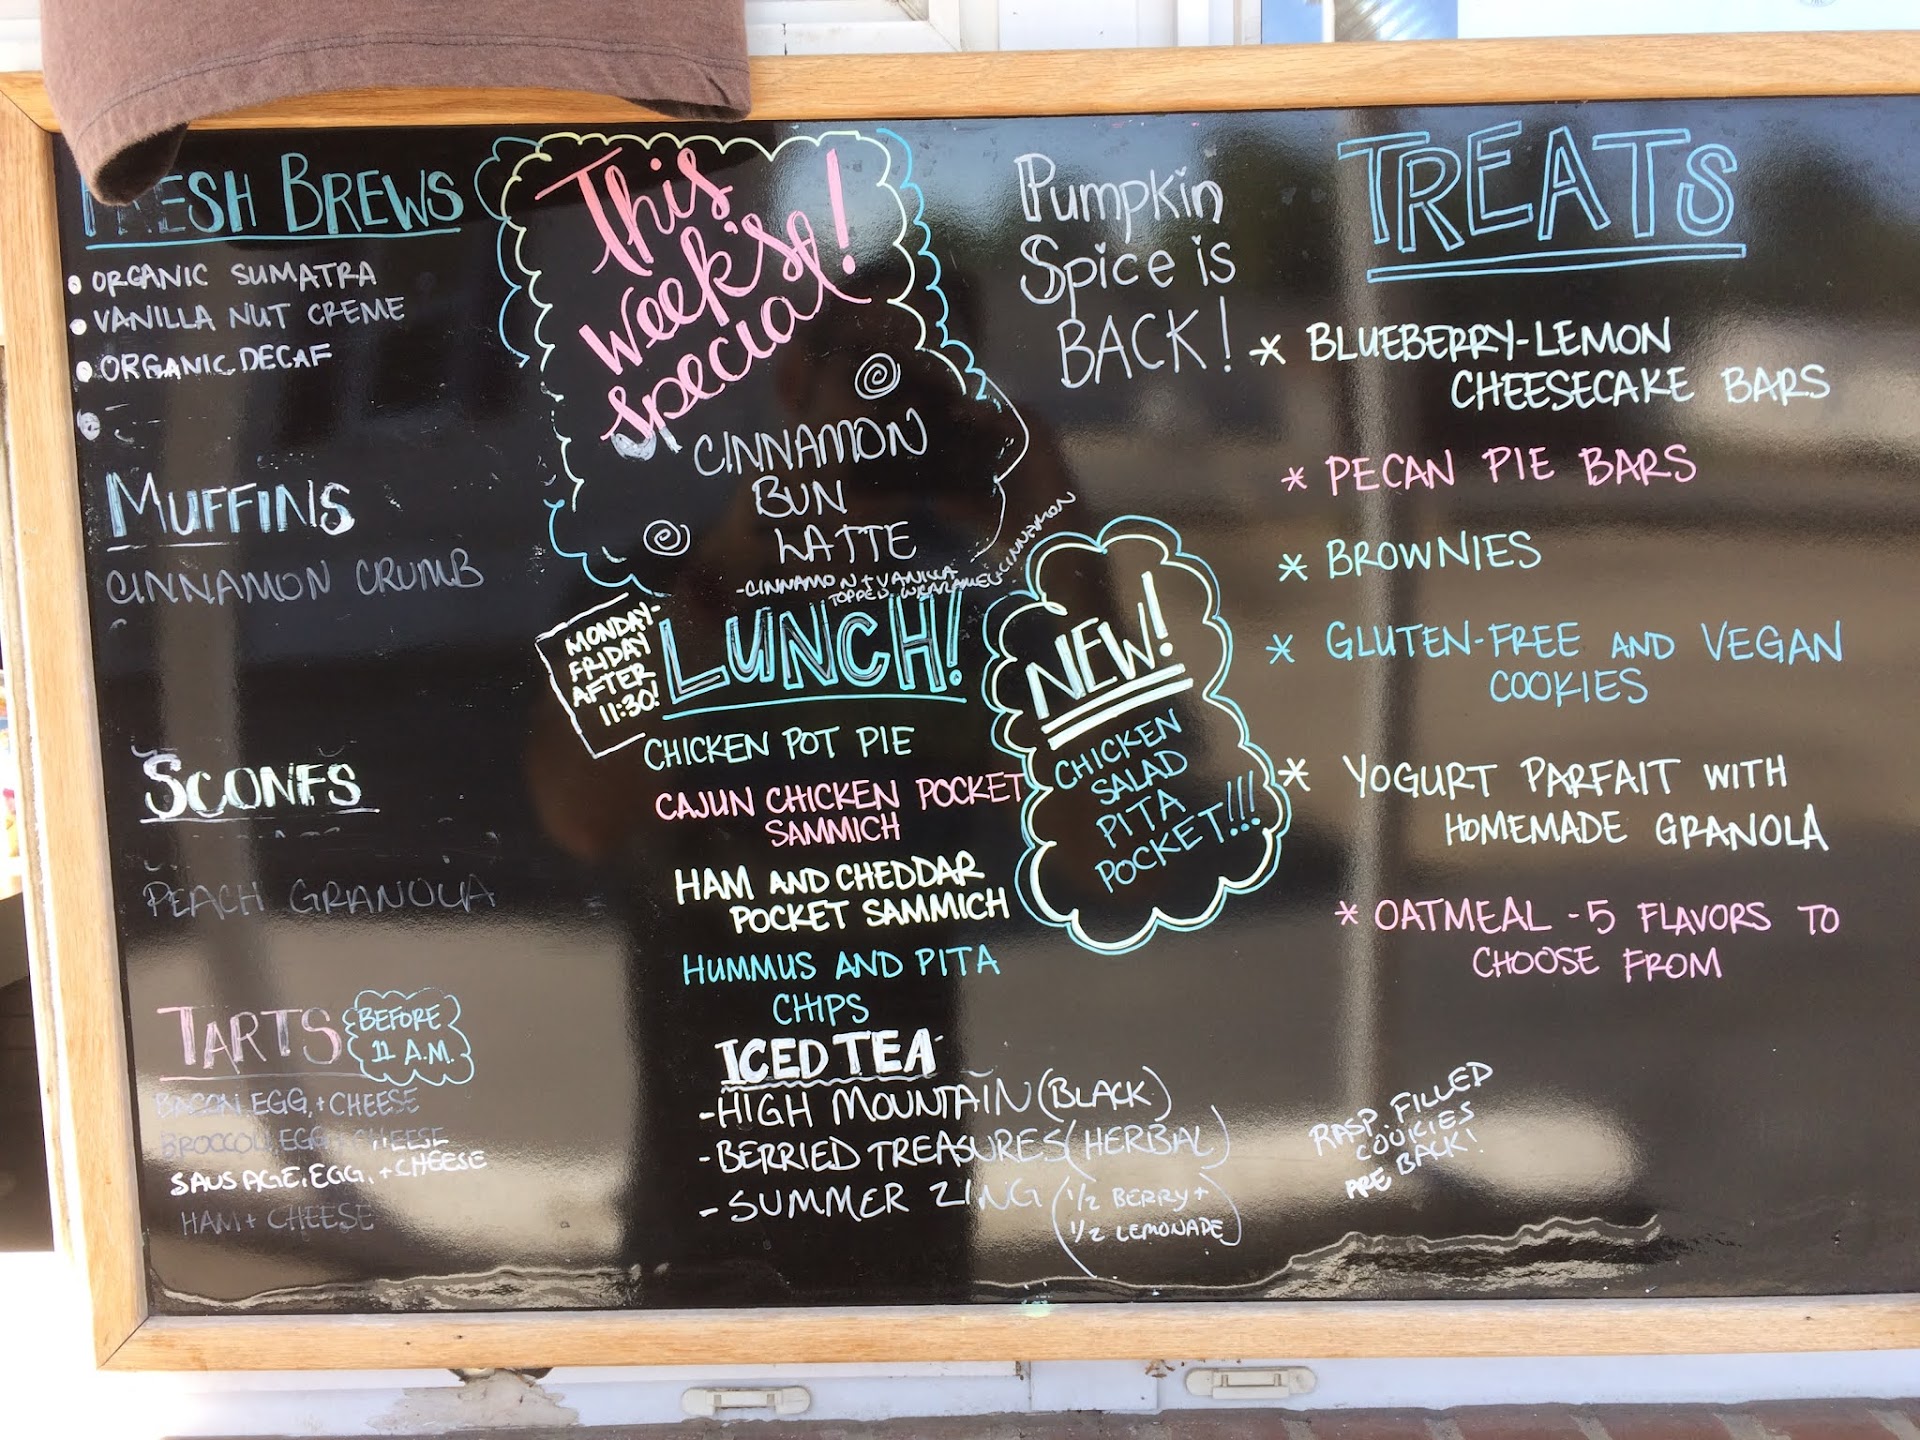 FRESH BREWS
• ORGANIC SUMATRA
• VANILLA NUT CREME
• ORGANIC DECAF
MUFFINS
CINNAMON CRUMB
SCONES
PEACH GRANOLA
TARTS
BEFORE
11 A.M.
BACON, EGG, + CHEESE
BROCCOLI, EGG, + CHEESE
SAUSAGE, EGG, + CHEESE
HAM + CHEESE
This
week's
special!
CINNAMON
BUN
LATTE
-CINNAMON + VANILLA
TOPPED W/CARAMEL + CINNAMON
MONDAY-
FRIDAY
AFTER
11:30!
LUNCH!
CHICKEN POT PIE
CAJUN CHICKEN POCKET
SAMMICH
HAM AND CHEDDAR
POCKET SAMMICH
HUMMUS AND PITA
CHIPS
NEW!
CHICKEN
SALAD
PITA
POCKET!!!
ICED TEA
-HIGH MOUNTAIN (BLACK)
-BERRIED TREASURES (HERBAL)
-SUMMER ZING (1/2 BERRY +
1/2 LEMONADE)
Pumpkin
Spice is
BACK!
TREATS
* BLUEBERRY-LEMON
CHEESECAKE BARS
* PECAN PIE BARS
* BROWNIES
* GLUTEN-FREE AND VEGAN
COOKIES
* YOGURT PARFAIT WITH
HOMEMADE GRANOLA
* OATMEAL - 5 FLAVORS TO
CHOOSE FROM
RASP. FILLED
COOKIES
ARE BACK!